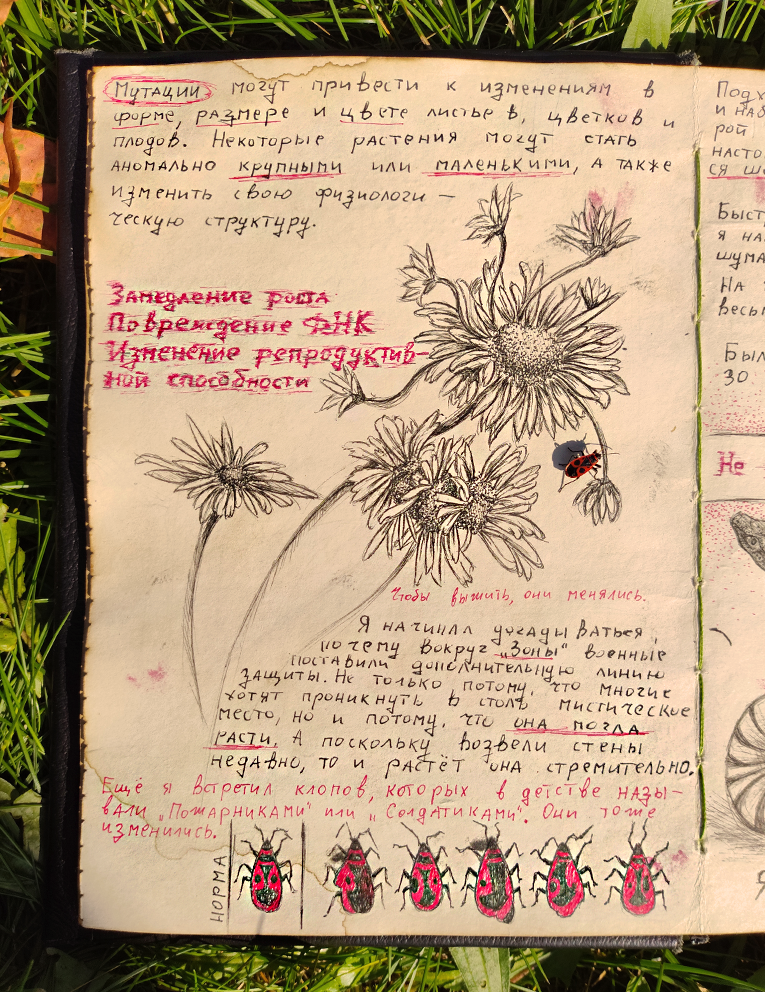 Мутации могут привести к изменениям в
форме, размере и цвете листьев, цветков и
плодов. Некоторые растения могут стать
аномально крупными или маленькими, а также
изменить свою физиологи –
ческую структуру.
Замедление роста
Повреждение ДНК
Изменение репродуктив-
ной способности
Чтобы выжить, они менялись.
Я начинал догадываться,
почему вокруг „Зоны" военные
поставили дополнительную линию
защиты. Не только потому, что многие
хотят проникнуть в столь мистическое
место, но и потому, что она могла
расти. А поскольку возвели стены
недавно, то и растёт она стремительно.
Ещё я встретил клопов, которых в детстве назы-
вали „Пожарниками" или „Солдатиками". Они тоже
изменились.
НОРМА
Подх
и наб
рой
насто
ся ш
Быст
я на
шума
На
весь
Был
30
Не